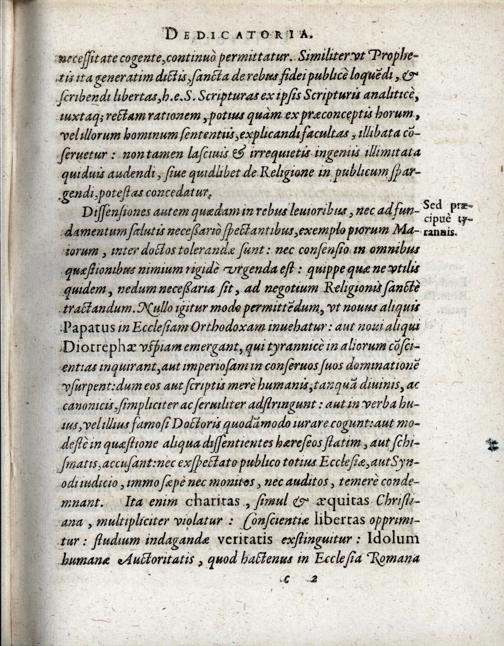 DEDICATORIA.
neceſſitate cogente, continuò permittatur. Similiter vt Prophe-
tis ita generatim dictis, ſancta de rebus fidei publicè loquẽdi, &
ſcribendi libertas, h.e.S. Scripturas ex ipſis Scripturis analiticè,
iuxtaq; rectam rationem, potius quàm ex præconceptis horum,
vel illorum hominum ſententiis, explicandi facultas, illibata cõ-
ſeruetur: non tamen laſciuis & irrequietis ingeniis illimitata
quiduis audendi, ſiue quidlibet de Religione in publicum ſpar-
gendi, poteſtas concedatur.
Diſſenſiones autem quædam in rebus leuioribus, nec ad fun-
damentum ſalutis neceſſariò ſpectantibus, exemplo piorum Ma-
iorum, inter doctos tolerandæ ſunt: nec conſenſio in omnibus
quæſtionibus nimium rigidè vrgenda eſt: quippe quæ ne vtilis
quidem, nedum neceſſaria ſit, ad negotium Religionis ſanctè
tractandum. Nullo igitur modo permittẽdum, vt nouus aliquis
Papatus in Eccleſiam Orthodoxam inuehatur: aut noui aliqui
Diotrephæ vſpiam emergant, qui tyrannicè in aliorum cõſci-
entias inquirant, aut imperioſam in conſeruos ſuos dominationẽ
vſurpent: dum eos aut ſcriptis merè humanis, tanquã diuinis, ac
canonicis, ſimpliciter ac ſeruiliter adſtringunt: aut in verba hu-
ius, vel illius famoſi Doctoris quodãmodo iurare cogunt: aut mo-
deſtè in quæſtione aliqua diſſentientes hæreſeos ſtatim, aut ſchi-
ſmatis, accuſant: nec exſpectato publico totius Eccleſiæ, aut Syn-
odi iudicio, immo ſæpè nec monitos, nec auditos, temerè conde-
mnant. Ita enim charitas, ſimul & æquitas Chriſti-
ana, multipliciter violatur: Conſcientiæ libertas opprimi-
tur: ſtudium indagandæ veritatis exſtinguitur: Idolum
humanæ Auctoritatis, quod hactenus in Eccleſia Romana
c 2
Sed præ-
cipuè ty-
rannis.